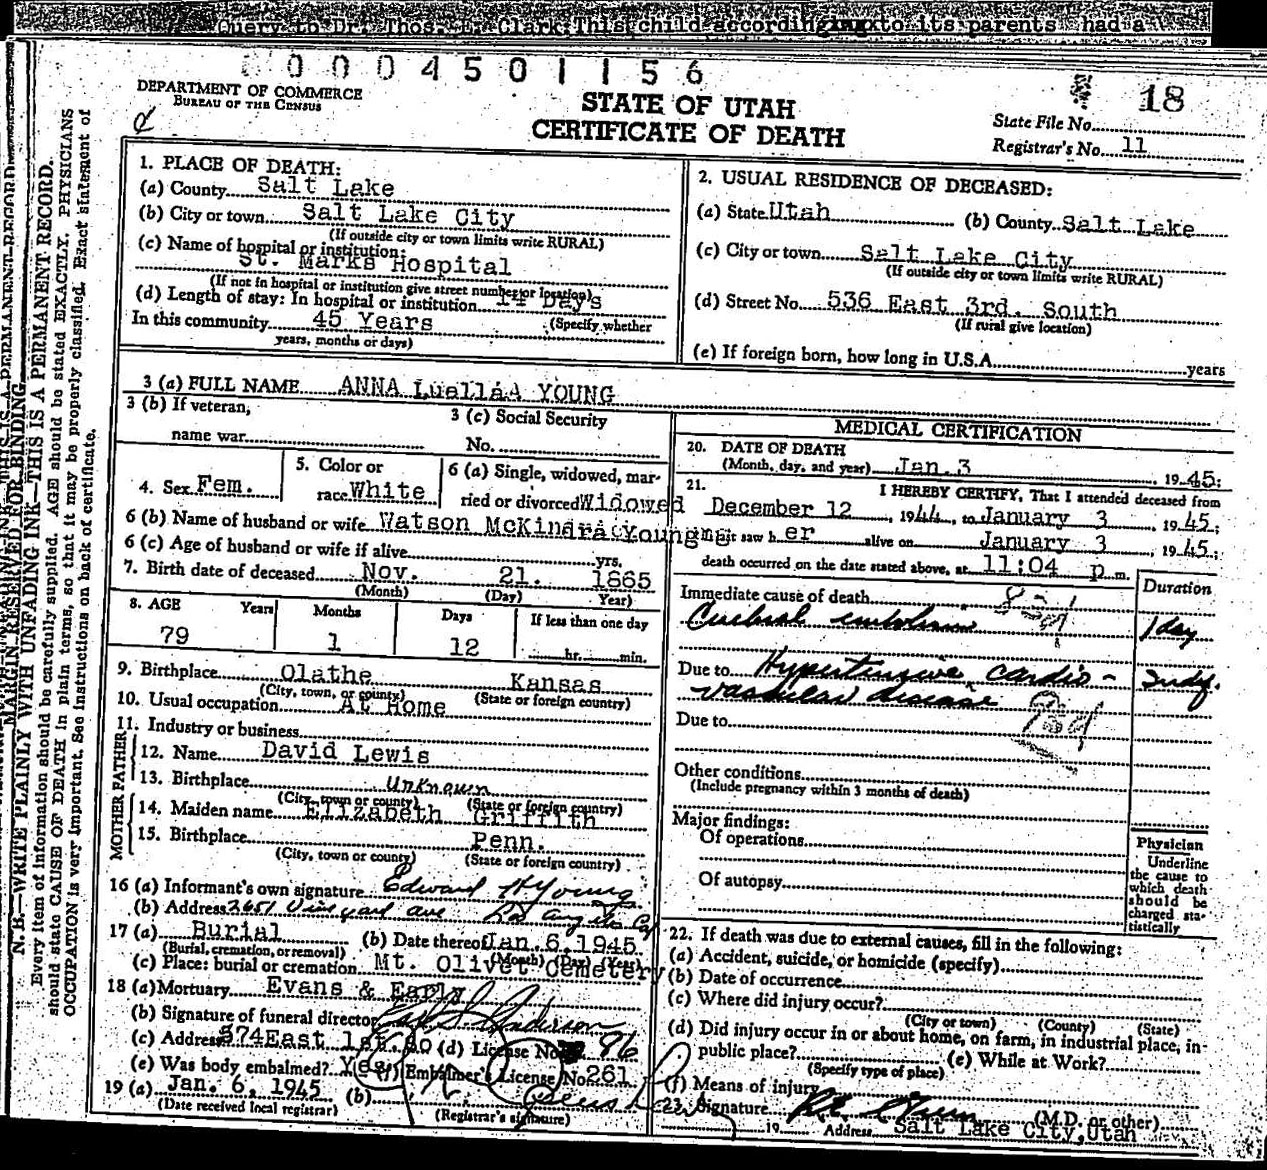 Query to Dr. Thos. E. Clark: This child according to its parents had a
0 0 0 0 4 5 0 1 1 5 6
18
DEPARTMENT OF COMMERCE
BUREAU OF THE CENSUS
STATE OF UTAH
CERTIFICATE OF DEATH
State File No.
Registrar's No. 11
N. B.—WRITE PLAINLY WITH UNFADING INK—THIS IS A PERMANENT RECORD.
MARGIN RESERVED FOR BINDING
Every item of information should be carefully supplied. AGE should be stated EXACTLY. PHYSICIANS
should state CAUSE OF DEATH in plain terms, so that it may be properly classified. Exact statement of
OCCUPATION is very important. See instructions on back of certificate.
1. PLACE OF DEATH:
(a) County Salt Lake
(b) City or town Salt Lake City
(If outside city or town limits write RURAL)
(c) Name of hospital or institution:
St. Marks Hospital
(If not in hospital or institution give street number or location)
(d) Length of stay: In hospital or institution 14 Days
In this community 45 Years (Specify whether
years, months or days)
2. USUAL RESIDENCE OF DECEASED:
(a) State Utah (b) County Salt Lake
(c) City or town Salt Lake City
(If outside city or town limits write RURAL)
(d) Street No. 536 East 3rd. South
(If rural give location)
(e) If foreign born, how long in U.S.A. years
3 (a) FULL NAME ANNA Luella YOUNG
3 (b) If veteran,
name war
3 (c) Social Security
No.
4. Sex Fem.
5. Color or
race White
6 (a) Single, widowed, mar-
ried or divorced Widowed
6 (b) Name of husband or wife Watson McKindra Young
6 (c) Age of husband or wife if alive yrs.
7. Birth date of deceased Nov. 21. 1865
(Month) (Day) Year)
8. AGE Years Months Days If less than one day
79 1 12 hr. min.
9. Birthplace Olathe Kansas
(City, town, or county) (State or foreign country)
10. Usual occupation At Home
11. Industry or business
FATHER
12. Name David Lewis
13. Birthplace Unknown
(City, town or county) (State or foreign country)
MOTHER
14. Maiden name Elizabeth Griffith
15. Birthplace Penn.
(City, town or county) (State or foreign country)
16 (a) Informant's own signature Edward H Young
(b) Address 2651 Vineyard ave Los Angeles Cal
17 (a) Burial (b) Date thereof Jan. 6, 1945
(Burial, cremation, or removal) (Month) (Day) (Year)
(c) Place: burial or cremation Mt. Olivet Cemetery
18 (a) Mortuary Evans & Early
(b) Signature of funeral director
(c) Address 574 East 1st. So (d) License No. 96
(e) Was body embalmed? Yes (f) Embalmer's License No. 261
19 (a) Jan. 6, 1945 (b)
(Date received local registrar) (Registrar's signature)
MEDICAL CERTIFICATION
20. DATE OF DEATH
(Month, day, and year) Jan. 3, 1945;
21. I HEREBY CERTIFY, That I attended deceased from
December 12, 1944, to January 3, 1945;
saw her alive on January 3, 1945;
death occurred on the date stated above, at 11:04 p m.
Duration
Immediate cause of death
Cerebral embolism 1 day
Due to Hypertensive cardio-
vascular disease
Due to
Other conditions
(Include pregnancy within 3 months of death)
Major findings:
Of operations
Of autopsy
Physician
Underline
the cause to
which death
should be
charged sta-
tistically
22. If death was due to external causes, fill in the following:
(a) Accident, suicide, or homicide (specify)
(b) Date of occurrence
(c) Where did injury occur?
(City or town) (County) (State)
(d) Did injury occur in or about home, on farm, in industrial place, in
public place? (e) While at Work?
(Specify type of place)
(f) Means of injury
23. Signature (M.D. or other)
19 Address Salt Lake City, Utah